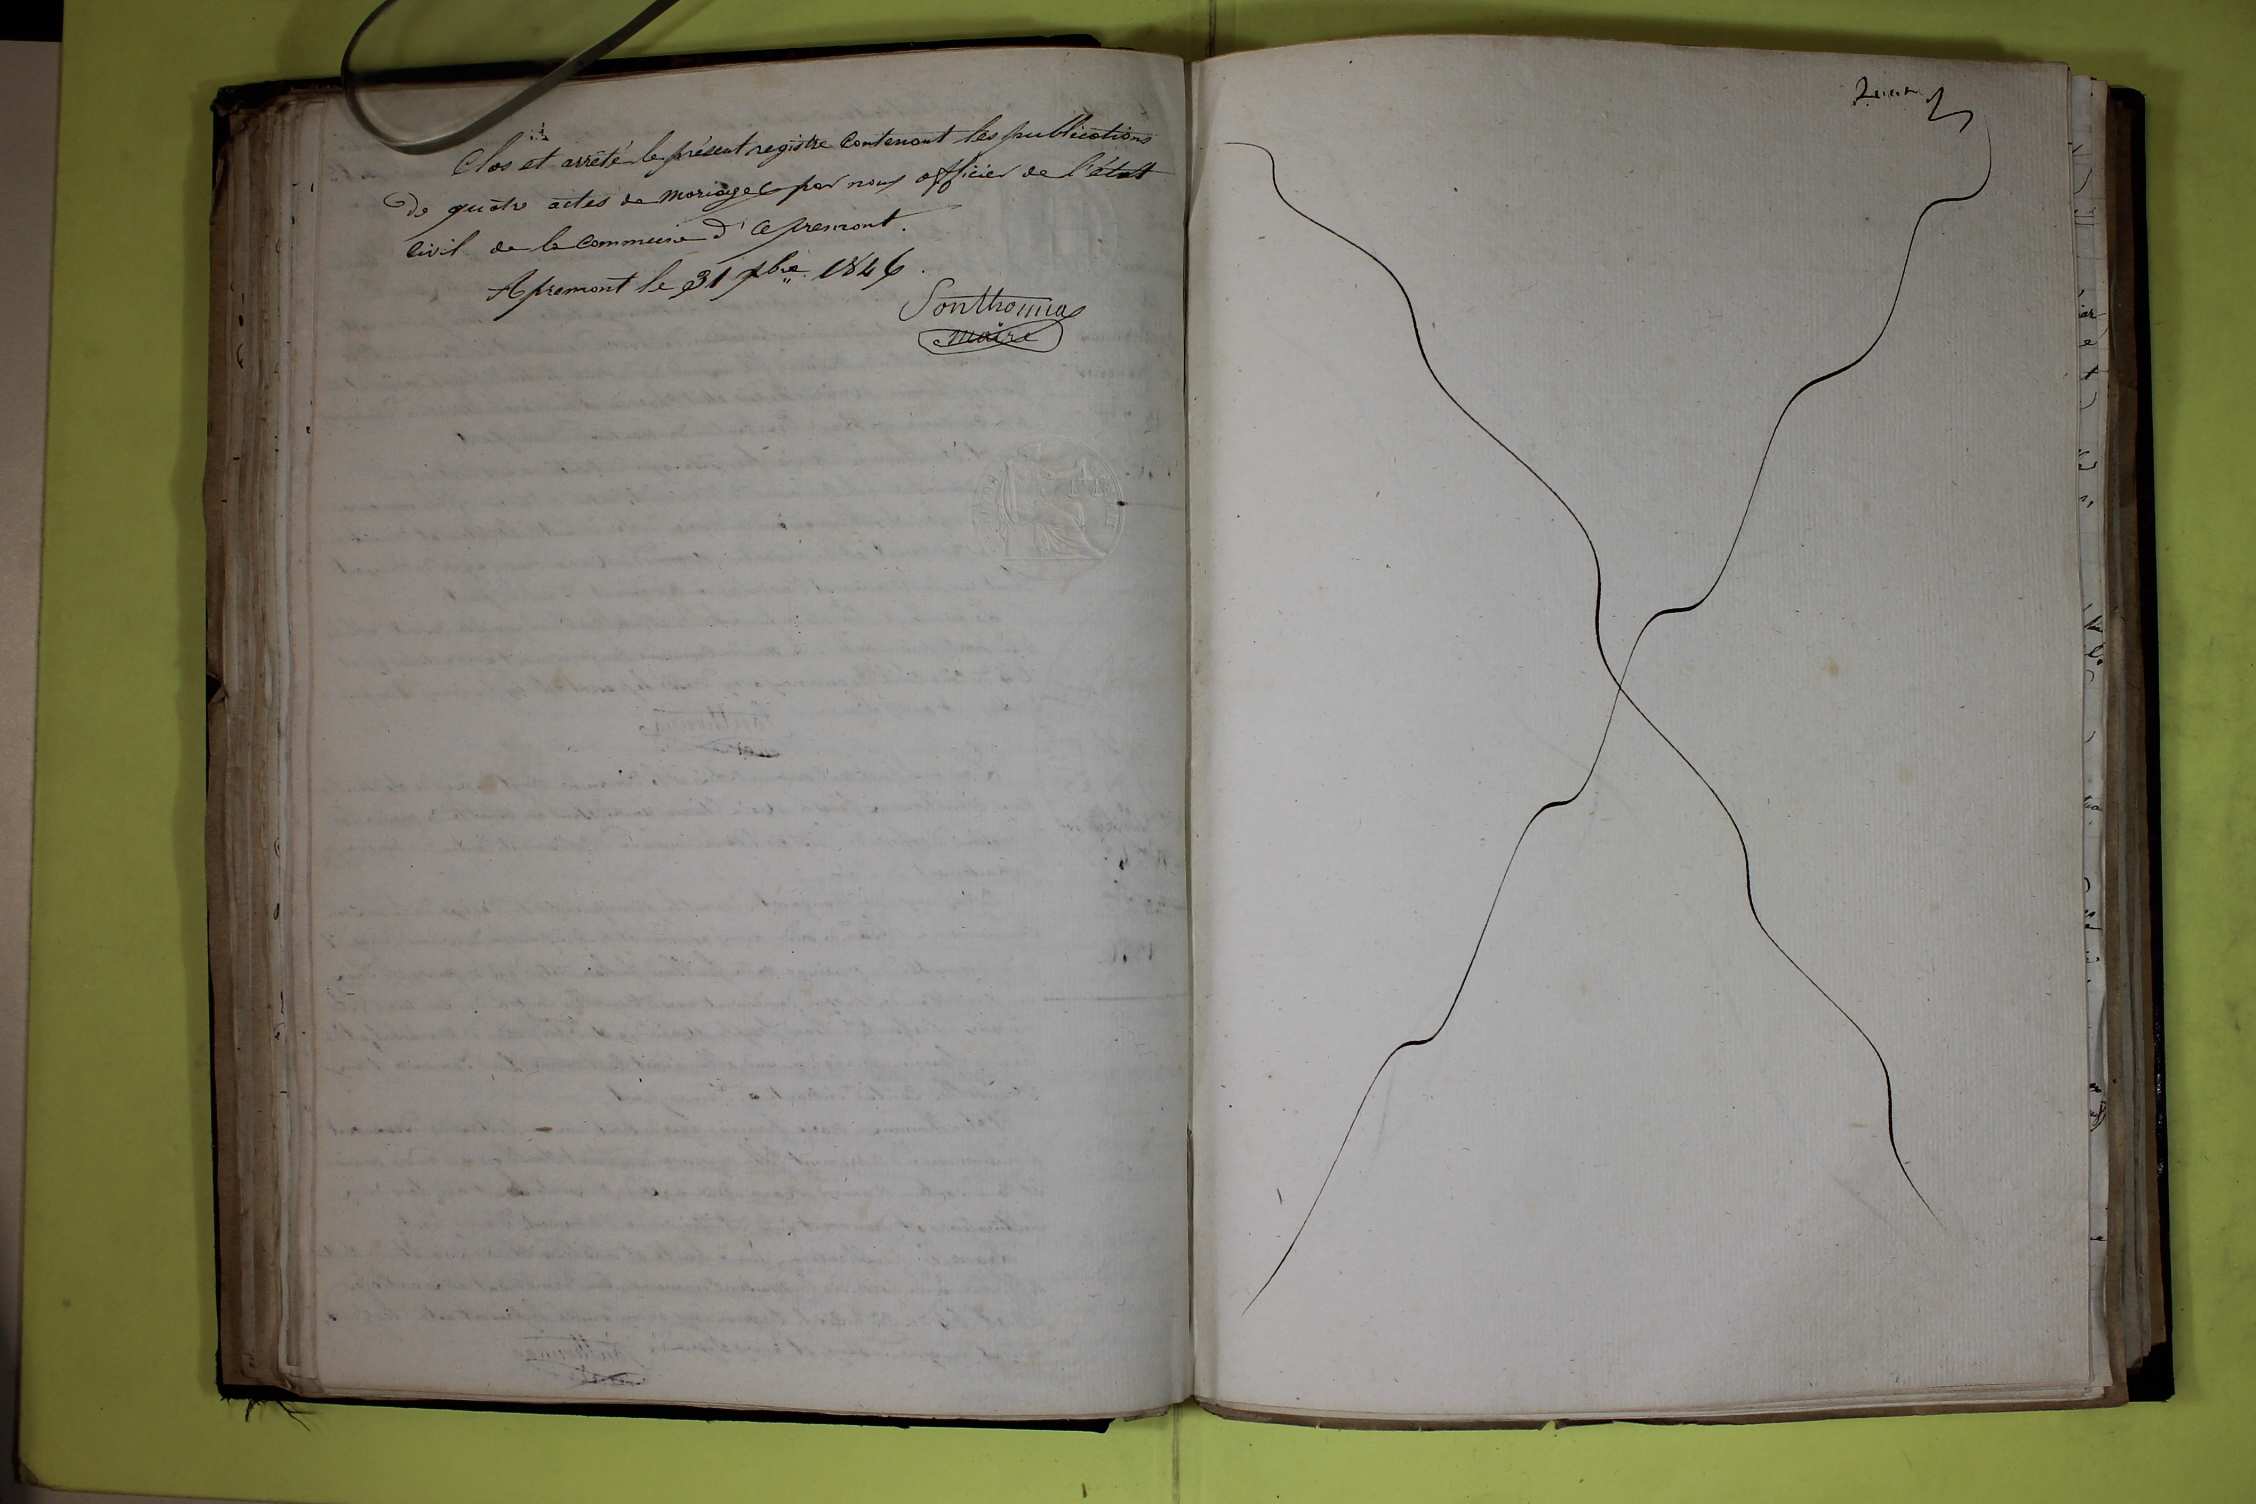 Clos et arrêté le présent registre contenant les publications
de quatre actes de mariages par nous officier de l'état
civil de la commune d'apremont.
Apremont le 31 xbre 1846.
Sonthonnax
maire